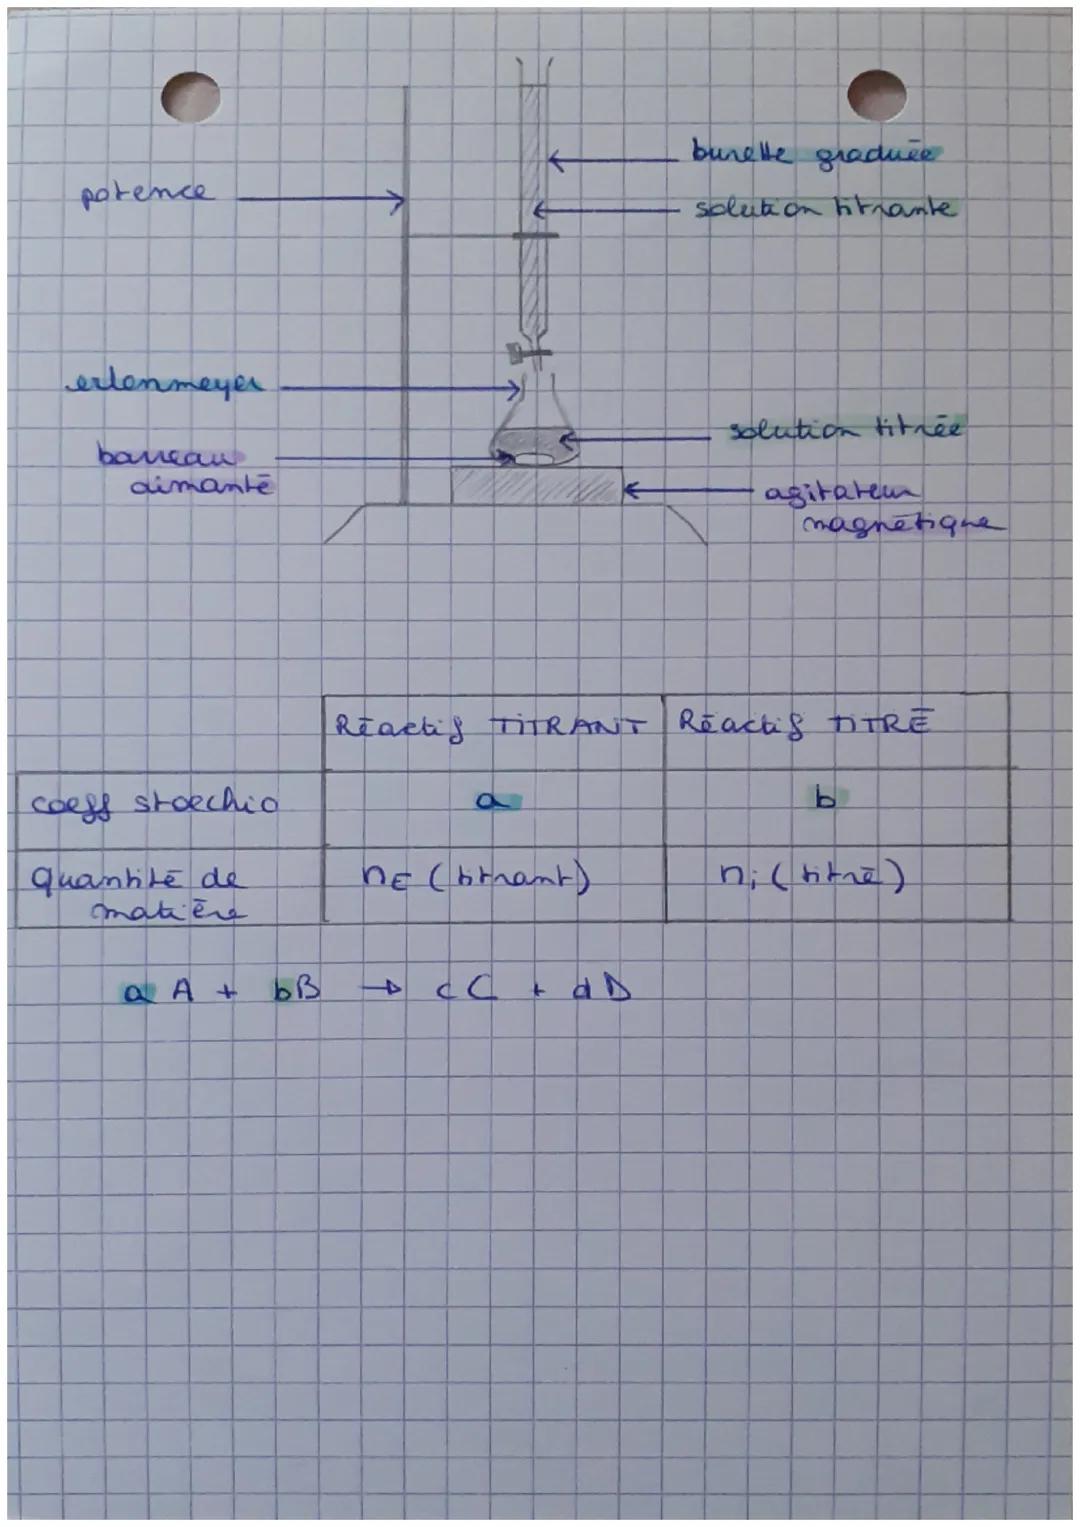 burette graduée
potence
solution titrante
erlenmeyer
solution titrée
barreau
aimanté
agitateur
magnétique
Réactif TITRANT Réactif TITRÉ
coeff stoechio a b
Quantité de nE (titrant) ni (titré)
matière
a A + bB → cC + dD